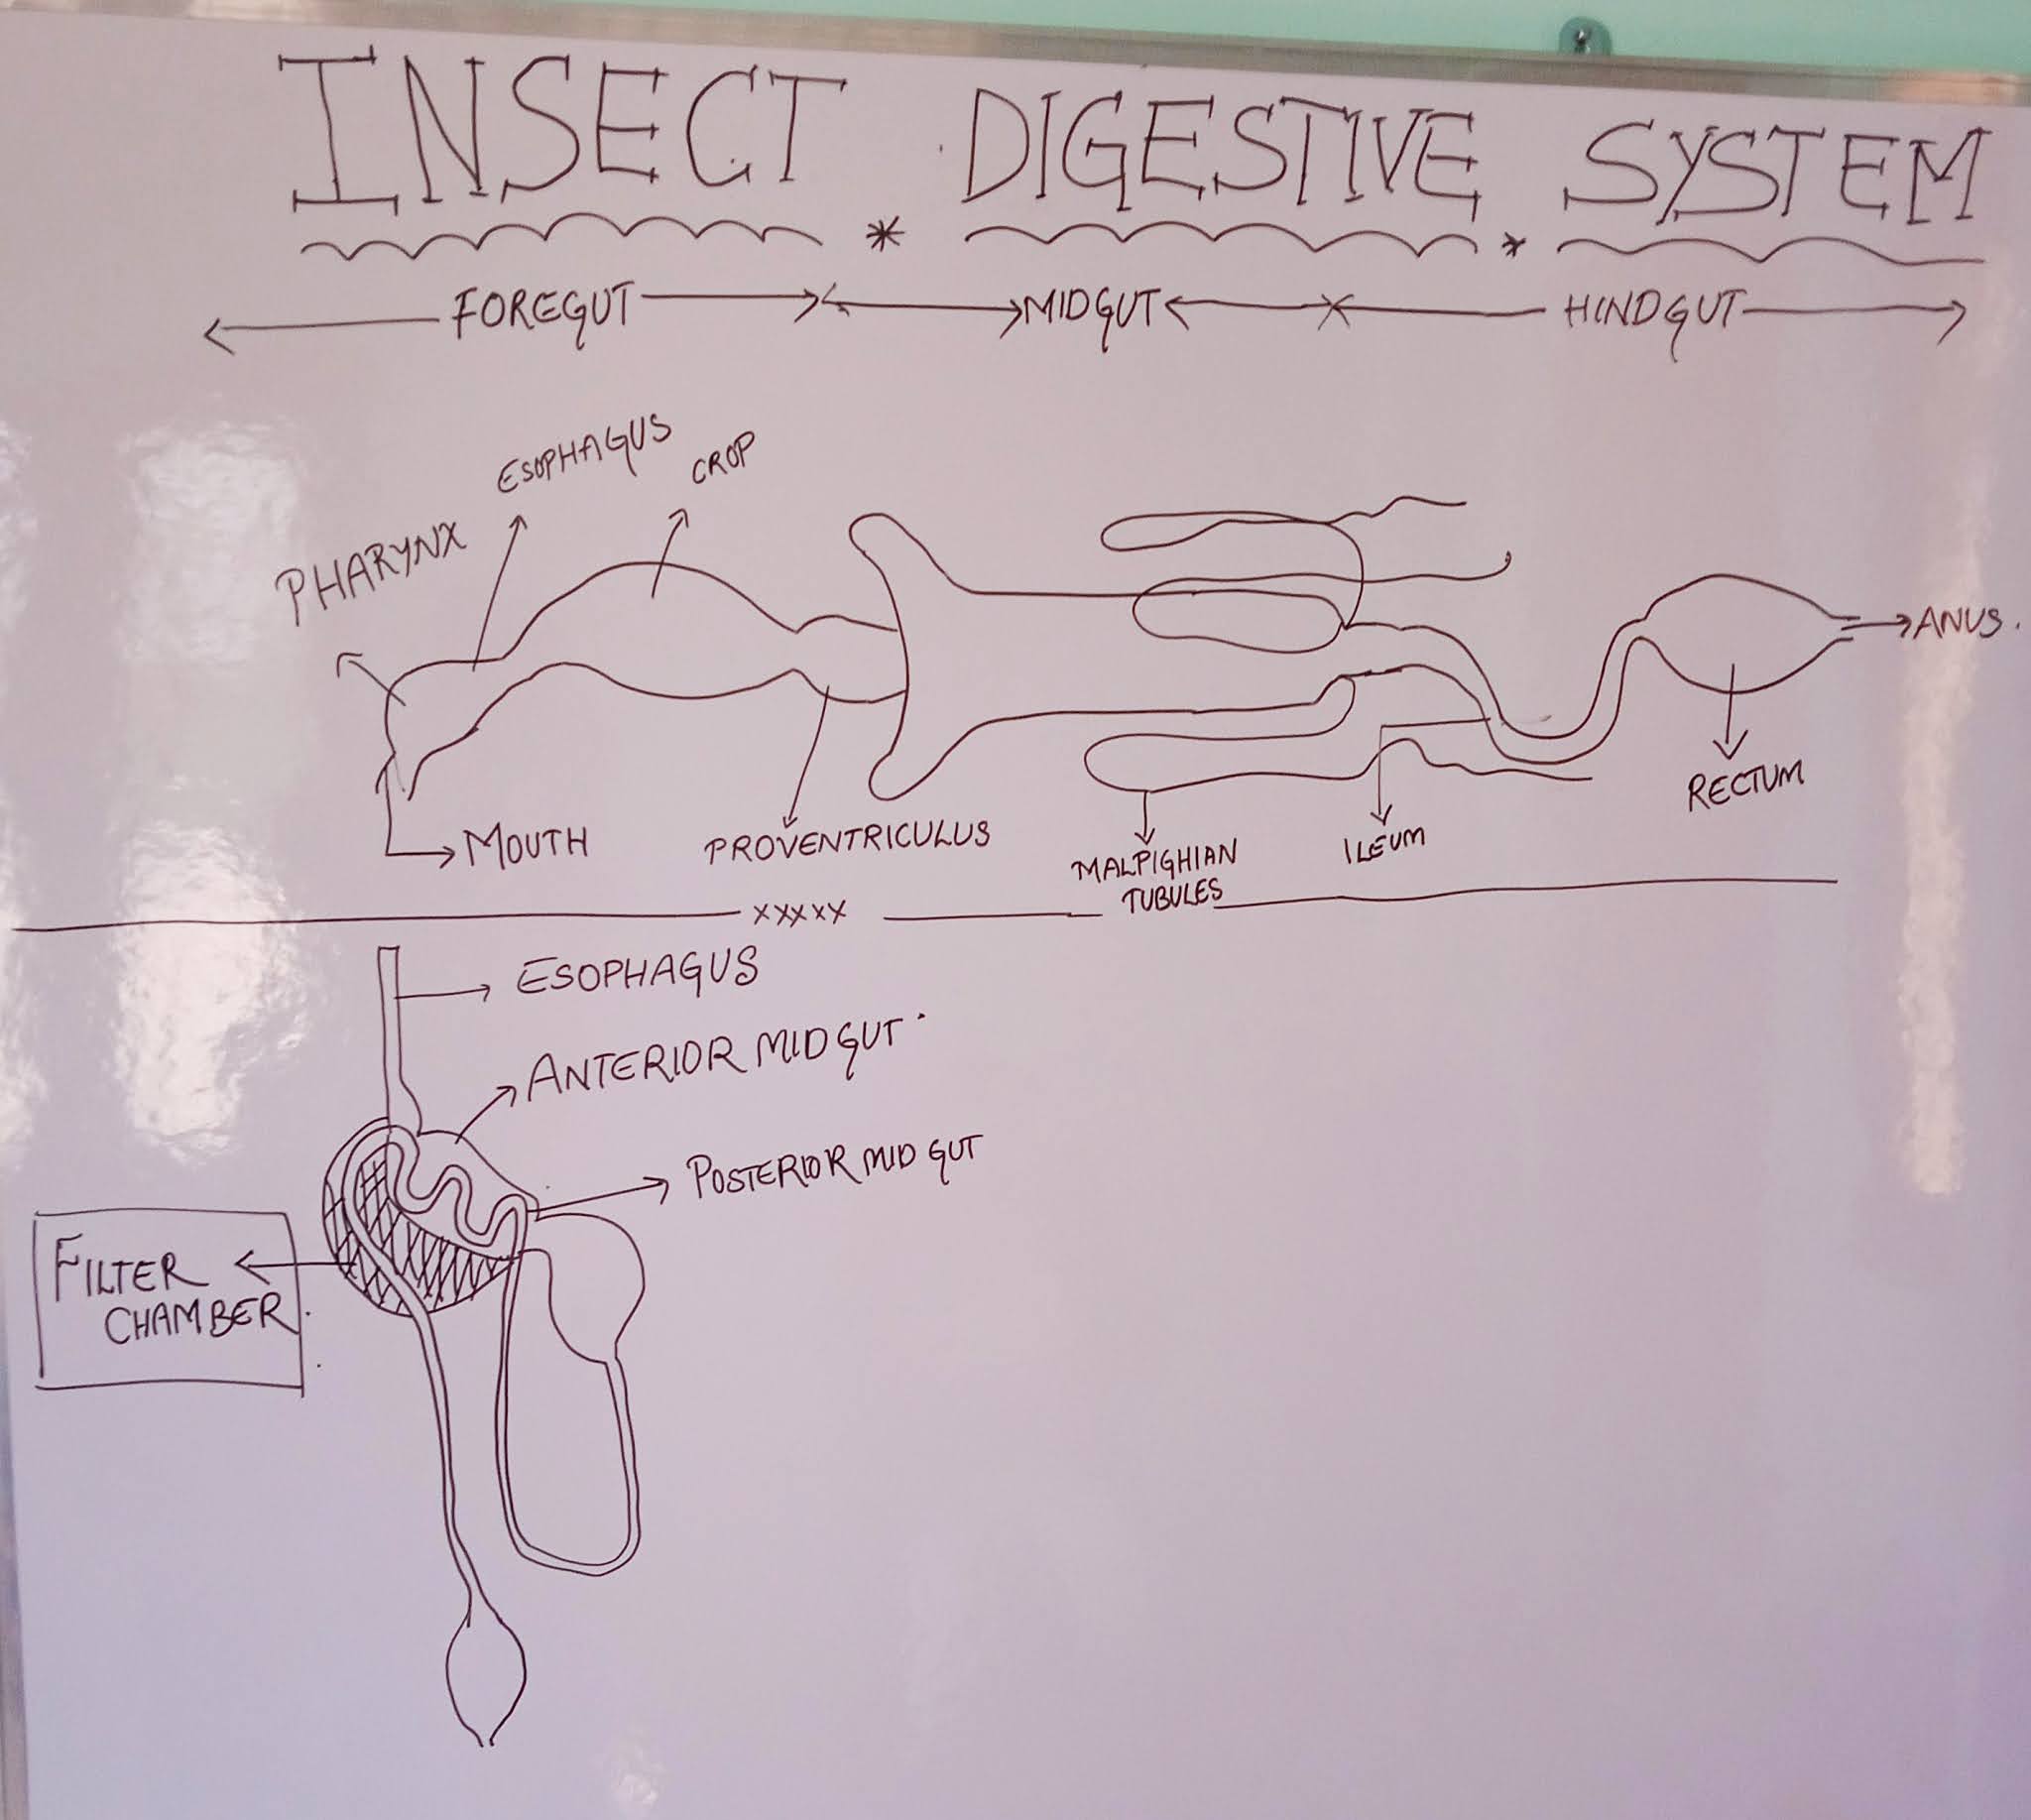 INSECT DIGESTIVE SYSTEM
FOREGUT MIDGUT HINDGUT
ESOPHAGUS
CROP
PHARYNX
ANUS.
RECTUM
MOUTH
PROVENTRICULUS
MALPIGHIAN
TUBULES
ILEUM
XXXXX
ESOPHAGUS
ANTERIOR MIDGUT
POSTERIOR MID GUT
FILTER
CHAMBER